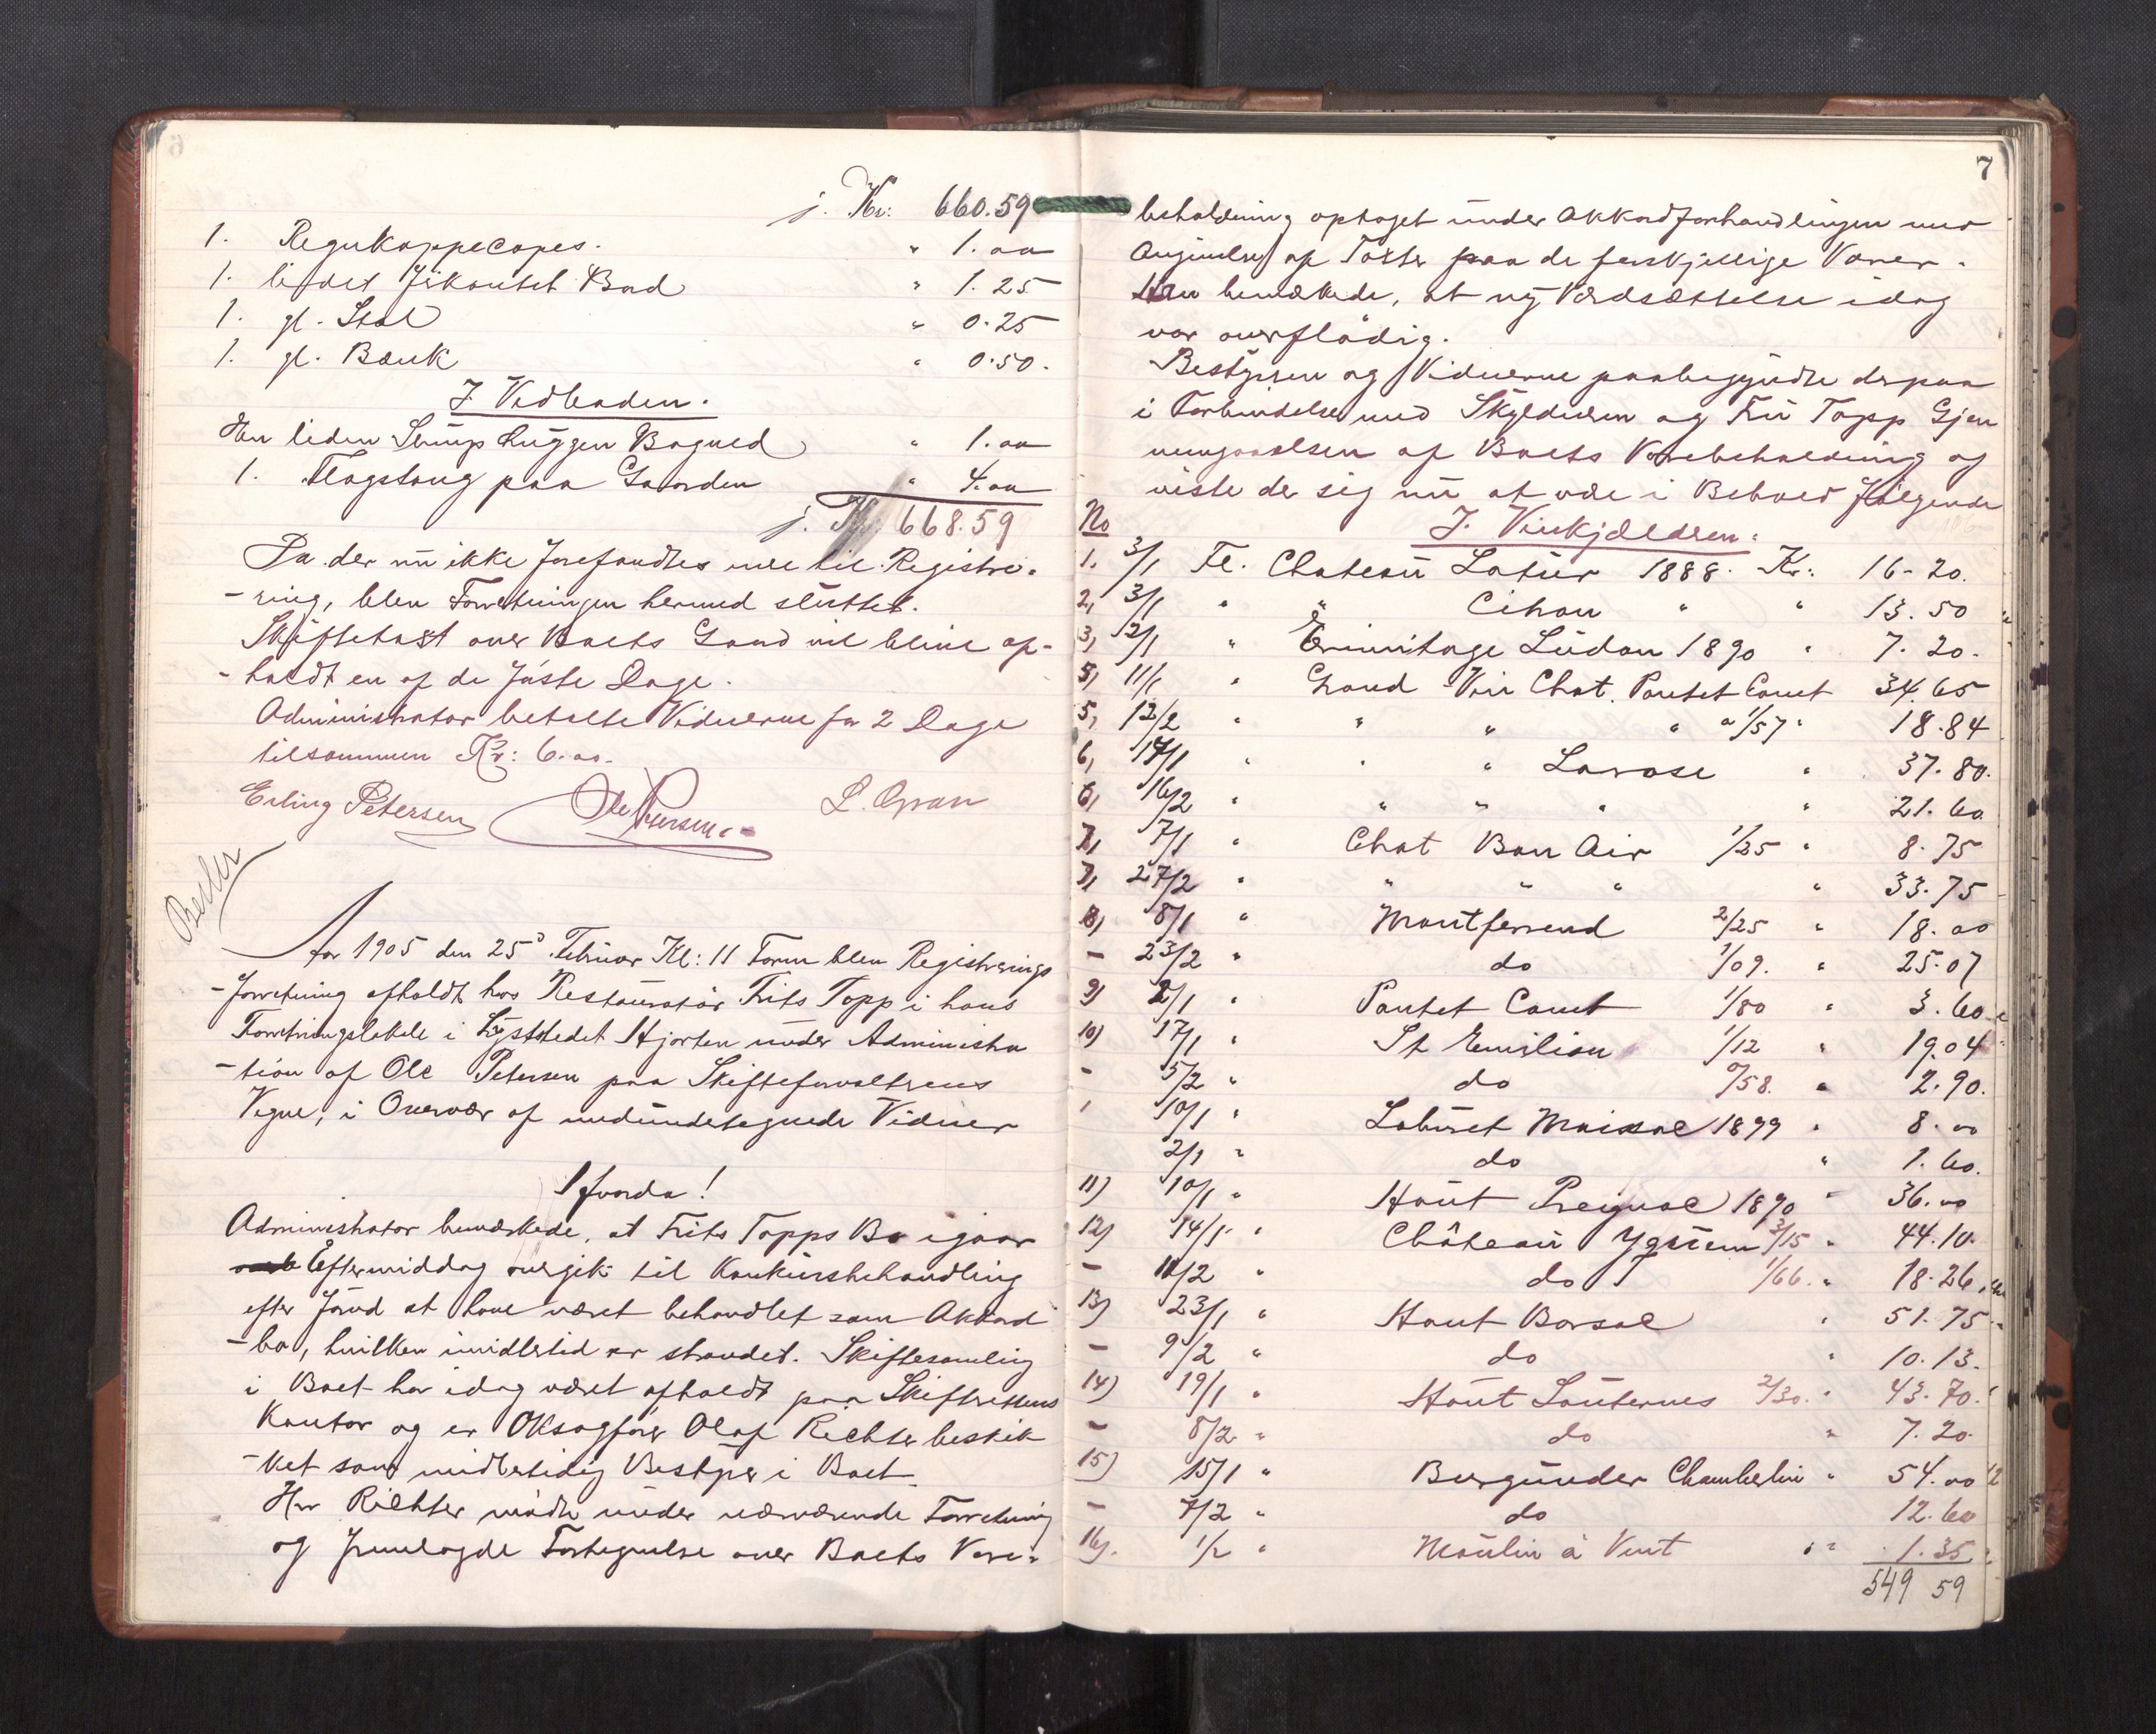 j. Kr: 660.59
1. Regnkappecapes. " 1.00
1. lidet firkantet Bord " 1.25
1. gl. Stol " 0.25
1. gl. Bænk " 0.50.
I Vedboden.
En liden Slump huggen Bagved " 1.00
1. Flagstang paa Gaarden " 4.00
j. Kr: 668.59
Da der nu ikke forefandtes mere til Registre-
-ring, blev Forretningen hermed sluttet.
Skiftetaxt over Boets Gaard vil blive af-
-holdt en af de første Dage.
Administrator betalte Vidnerne for 2 Dage
tilsammen Kr: 6.00.
Erling Petersen Ole Petersen L. Gran
Aar 1905 den 25de Februar Kl: 11 Form blev Registrerings
-forretning afholdt hos Restauratør Frits Topp i hans
Forretningslokale i Lyststedet Hjorten under Administra
-tion af Ole Petersen paa Skifteforvalterens
Vegne, i Overvær af medundertegnede Vidner
Hvorda!
Administrator bemærkede, at Frits Topps Bo igaar
Eftermiddag overgik til Konkursbehandling
efter først at have været behandlet som Akkord
-bo, hvilken imidlertid er strandet. Skiftesamling
i Boet har idag været afholdt paa Skifterettens
Kontor og er ORsagfører Olaf Richter beskik
-ket som midlertidig Bestyrer i Boet.
Hr Richter mødte under nærværende Forretning
og fremlagde Fortegnelse over Boets Vare-
7
beholdning optaget under Akkordforhandlingen med
Angivelse af Taxter paa de forskjellige Varer.
Han bemærkede, at ny Værdsættelse idag
var overflødig.
Bestyreren og Vidnerne paabegyndte derpaa
i Forbindelse med Skyldneren og Fru Topp Gjen
nemgaaelsen af Boets Varebeholdning og
viste der sig nu at være i Behold følgende
No I. Vinkjælderen.
1. 3/1 Fl. Chateau Latur 1888. Kr: 16-20.
2, 3/1 " " Citran " " 13.50
3, 2/1 " Ermitage Ludon 1890 " 7.20.
5, 11/1 " Grand Vin Chat. Pontet Canet 34.65
5, 12/2 " " " " a 1/57 " 18.84
6, 14/1 " " " Larose " 37.80.
6, 16/2 " " " " " 21.60
7, 7/1 " Chat Bon Air 1/25 " 8.75
7, 27/2 " " " " " 33.75
8, 8/1 " Montferrend 2/25 " 18.00
- 23/2 " do 1/09. " 25.07
9) 2/1 " Pontet Canet 1/80 " 3.60
10) 17/1 " St Emilion 1/12 " 19.04
- 5/2 " do 0/58. " 2.90.
10/1 " Laburet Maisac 1899 " 8.00
2/1 " do " 1.60.
11) 10/1 " Haut Preignac 1890 " 36.00
12) 14/1 " Château Yquem 3/15 " 44.10.
- 11/2 " do 1/66. " 18.26
13) 23/1 " Haut Barsac " 51.75
- 9/2 " do " 10.13.
14) 19/1 " Haut Sauternes 2/30. " 43.70.
- 8/2 " do " 7.20.
15) 15/1 " Burgunder Chambertin " 54.00
- 7/2 " do 12.60
16). 1/2 " Moulin à Vent " " 1.35
549 59